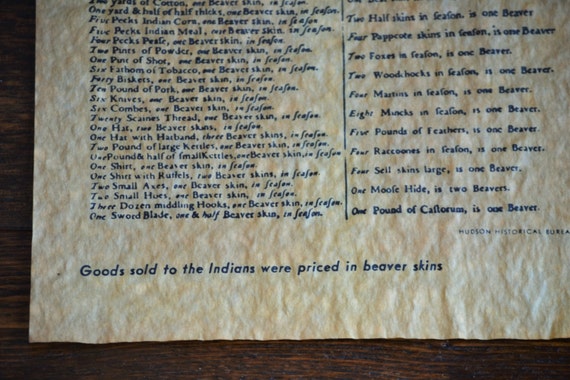 Two yards of Cotton, one Beaver skin, in ſeaſon.
One yard & half of half thicks, one Beaver skin, in ſeaſon.
Five Pecks Indian Corn, one Beaver skin, in ſeaſon.
Five Pecks Indian Meal, one Beaver skin, in ſeaſon.
Four Pecks Peaſe, one Beaver skin, in ſeaſon.
Two Pints of Powder, one Beaver skin, in ſeaſon.
One Pint of Shot, one Beaver skin, in ſeaſon.
Six Fathom of Tobacco, one Beaver skin, in ſeaſon.
Forty Biskets, one Beaver skin, in ſeaſon.
Ten Pound of Pork, one Beaver skin, in ſeaſon.
Six Knives, one Beaver skin, in ſeaſon.
Six Combes, one Beaver skin, in ſeaſon.
Twenty Scaines Thread, one Beaver skin, in ſeaſon.
One Hat, two Beaver skins, in ſeaſon.
One Hat with Hatband, three Beaver skins, in ſeaſon.
Two Pound of large Kettles, one Beaver skin, in ſeaſon.
One Pound & half of ſmall Kettles, one Beaver skin, in ſeaſon
One Shirt, one Beaver skin, in ſeaſon.
One Shirt with Ruffels, two Beaver skins, in ſeaſon.
Two Small Axes, one Beaver skin, in ſeaſon.
Two Small Hoes, one Beaver skin, in ſeaſon.
Three Dozen middling Hooks, one Beaver skin, in ſeaſon.
One Sword Blade, one & half Beaver skin, in ſeaſon.
Two Half skins in ſeaſon, is one Beaver
Four Pappcote skins in ſeaſon, is one Beaver
Two Foxes in ſeaſon, is one Beaver.
Two Woodchocks in ſeaſon, is one Beaver.
Four Martins in ſeaſon, is one Beaver.
Eight Mincks in ſeaſon, is one Beaver.
Five Pounds of Feathers, is one Beaver.
Four Raccoones in ſeaſon, is one Beaver.
Four Seil skins large, is one Beaver.
One Mooſe Hide, is two Beavers.
One Pound of Caſtorum, is one Beaver.
HUDSON HISTORICAL BUREA
Goods sold to the Indians were priced in beaver skins